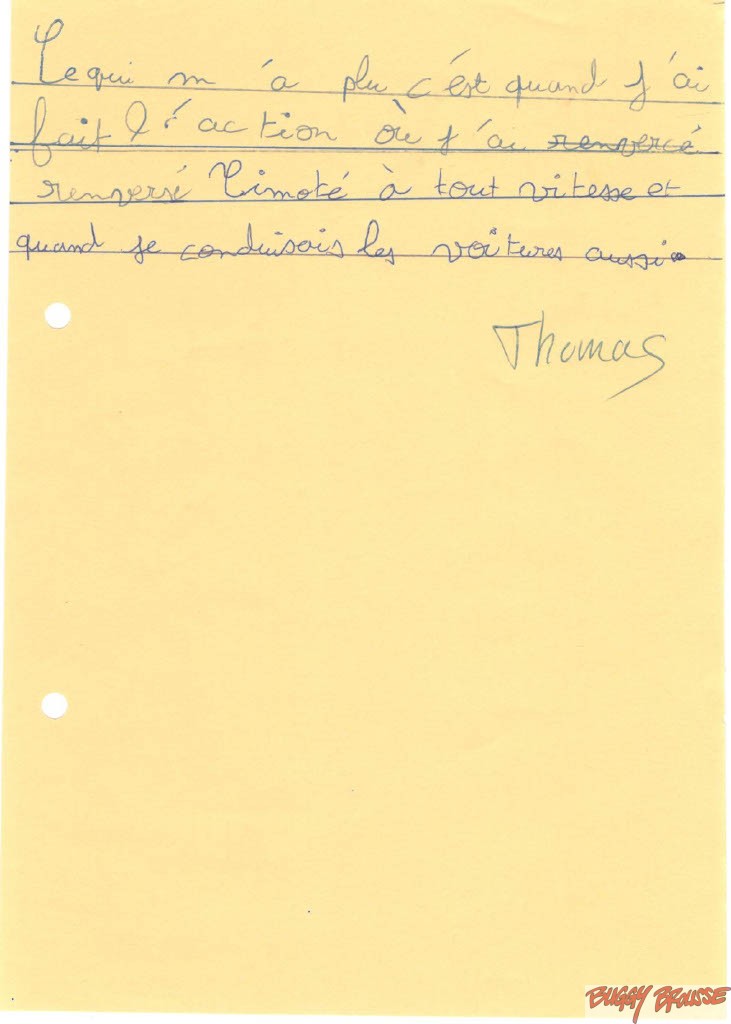 Ce qui m'a plu c'est quand j'ai
fait l'action où j'ai renvercé
renversé Timoté à tout vitesse et
quand je conduisois les voitures aussi.
Thomas
BUGGY BROUSSE